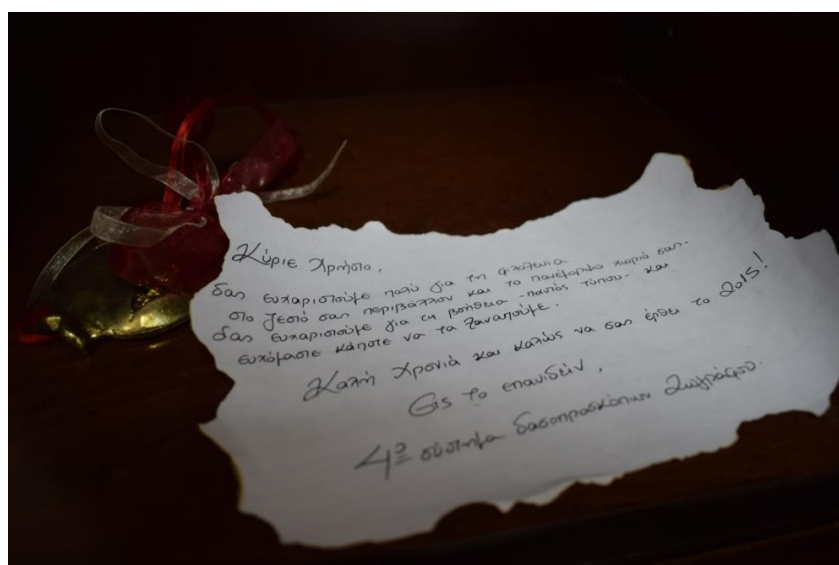 Κύριε Χρήστο,
Σας ευχαριστούμε πολύ για τη φιλοξενία
στο ζεστό σας περιβάλλον και το πανέμορφο χωριό σας.
Σας ευχαριστούμε για τη βοήθεια -παντός τύπου- και
ευχόμαστε κάποτε να τα ξαναπούμε.
Καλή Χρονιά και καλώς να σας έρθει το 2015!
Εις το επανιδείν,
4º σύστημα δασοπροσκόπων Ζωγράφου.